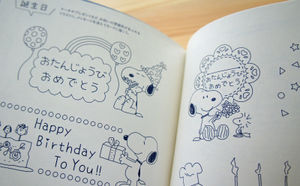 誕生日
おたんじょうび
おめでとう
Happy
Birthday
To You!!
おたんじょうび
おめでとう